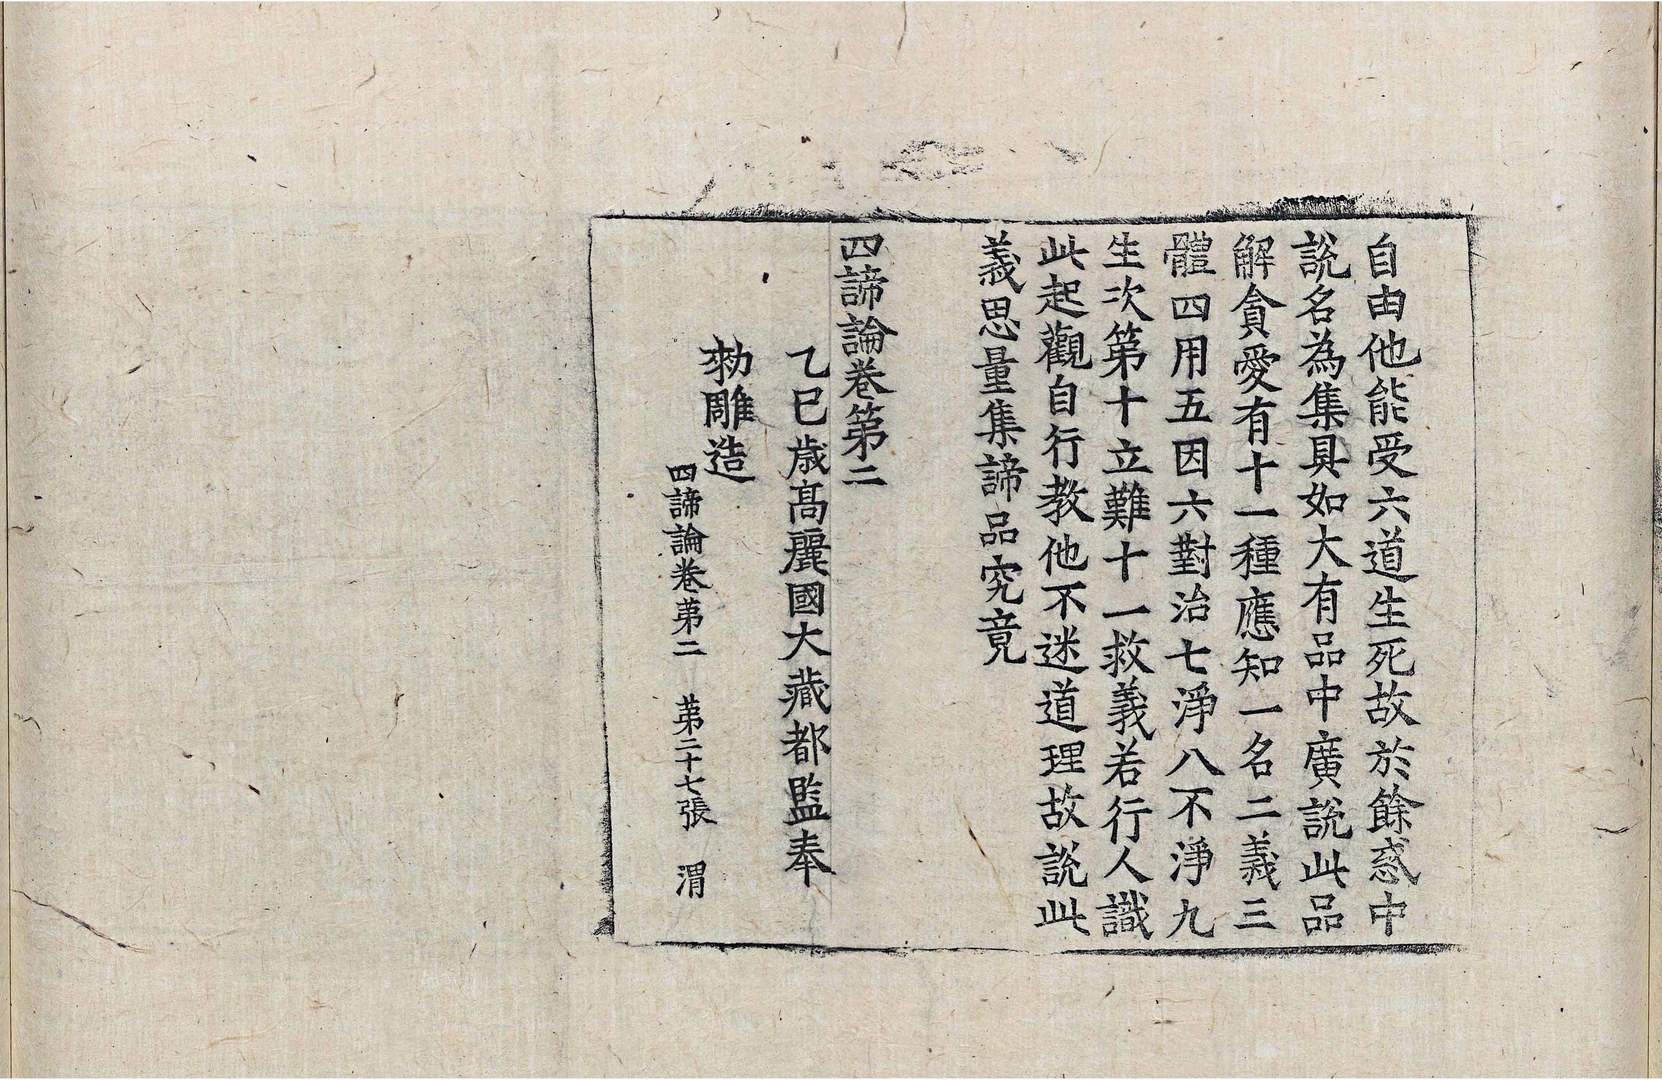 自由他能受六道生死故於餘惑中
說名為集具如大有品中廣說此品
解貪愛有十一種應知一名二義三
體四用五因六對治七淨八不淨九
生次第十立難十一救義若行人識
此起觀自行教他不迷道理故說此
義思量集諦品究竟
四諦論卷第二
乙巳歲高麗國大藏都監奉
勅雕造
四諦論卷第二 第二十七張 渭